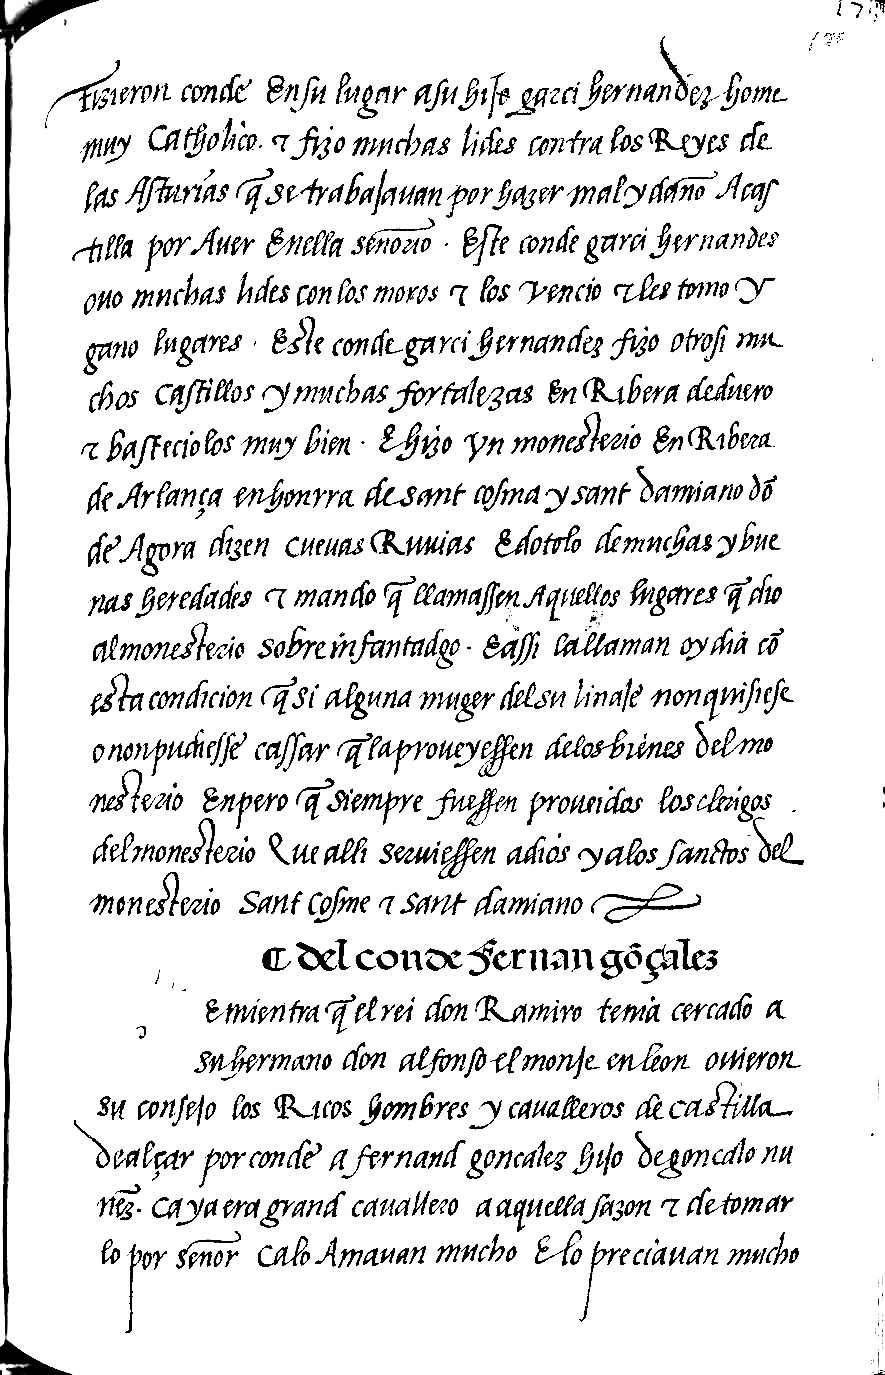 fizieron conde En su lugar a su hijo garci hernandez home
muy Catholico. ⁊ fizo muchas lides contra los Reyes de
las Asturias q̃ se trabajauan por hazer mal y daño A cas
tilla por Auer Enella señorio . Este conde garci hernandes
ouo muchas lides con los moros ⁊ los Vencio ⁊ les tomo y
gano lugares . Este conde garci hernandez fizo otrosi mu
chos Castillos y muchas fortalezas En Ribera deduero
⁊ bastecio los muy bien . E hizo Vn monesterio En Ribera
de Arlança en honrra de sant cosma y sant damiano dõ
de Agora dizen cueuas Ruuias E dotolo de muchas y bue
nas heredades ⁊ mando q̃ llamassen Aquellos lugares q̃ dio
al monesterio sobre infantadgo . E assi la llaman oy dia cõ
esta condicion q̃ si alguna muger del su linaje non quisiese
o non pudiesse cassar q̃ la proueyessen de los bienes del mo
nesterio Enpero q̃ siempre fuessen proueidos los clerigos
del monesterio Que alli seruiessen a dios y a los sanctos del
monesterio Sant Cosme ⁊ sant damiano
¶ del conde fernan gõçalez
E mientra q̃ el rei don Ramiro tenia cercado a
su hermano don alfonso el monje en leon ouieron
su consejo los Ricos hombres y caualleros de castilla
de alçar por conde a fernand goncalez hijo de goncalo nu
ñez. Ca ya era grand cauallero a aquella sazon ⁊ de tomar
lo por señor Ca lo Amauan mucho E lo preciauan mucho